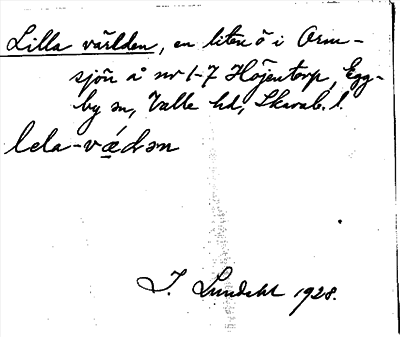 Lilla världen, en liten ö i Orm-
sjön å nr 1-7 Höjentorp, Egg-
by sn, Valle hd, Skarab. l.
lela-vǽdrən
I. Lundahl 1928.